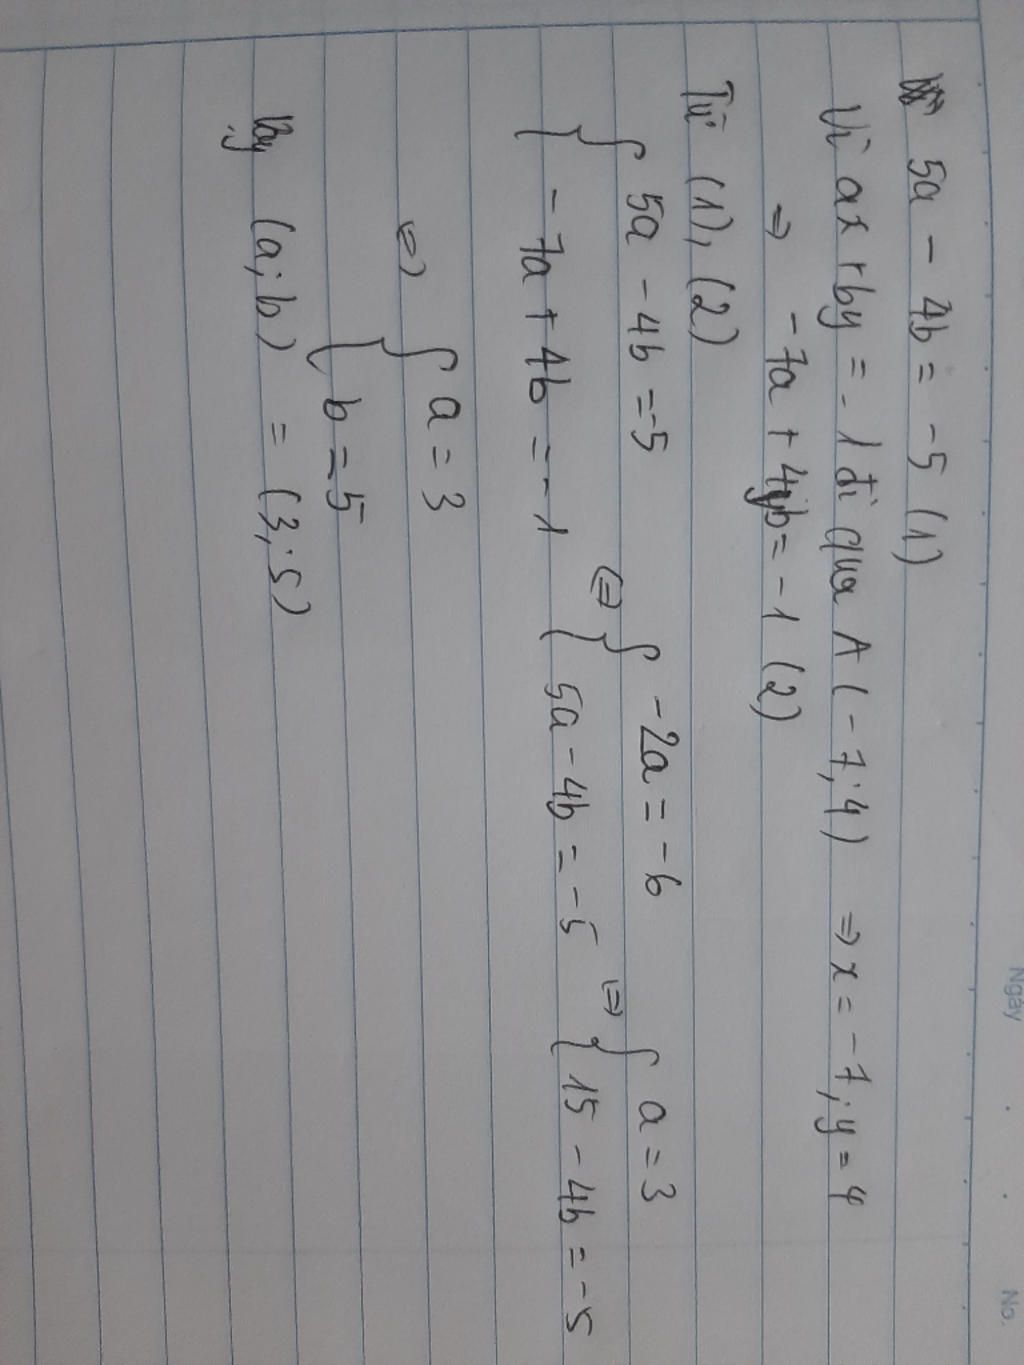 Ngày No.
5a - 4b = -5 (1)
Vì ax + by = -1 đi qua A (-7; 4) ⇒ x = -7; y = 4
⇒ -7a + 4b = -1 (2)
Từ (1), (2)
{ 5a - 4b = -5 ⇔ { -2a = -6 ⇔ { a = 3
{ -7a + 4b = -1 { 5a - 4b = -5 { 15 - 4b = -5
⇔ { a = 3
{ b = 5
Vậy (a; b) = (3; 5)